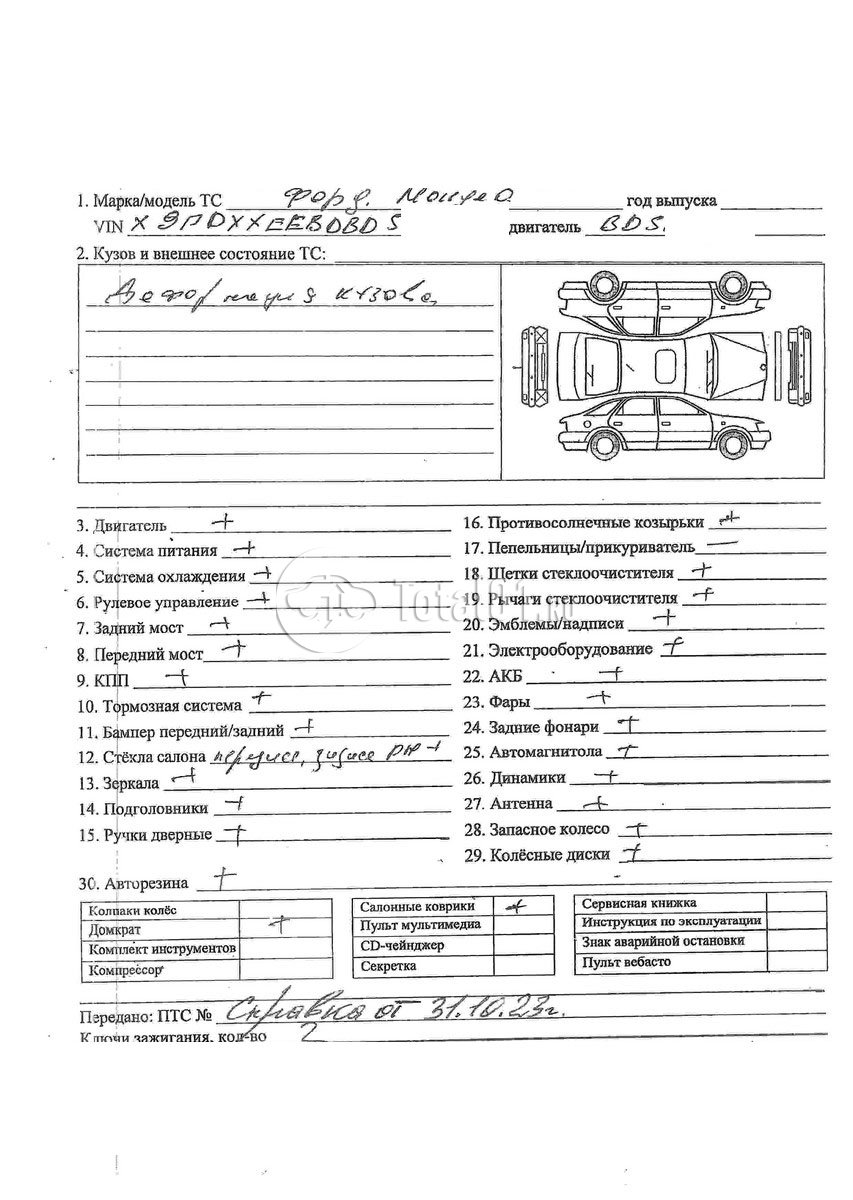 1. Марка/модель ТС Форд Мондео год выпуска
VIN X9FDXXEEBDBDS двигатель BDS.
2. Кузов и внешнее состояние ТС:
Деформация кузова
3. Двигатель +
4. Система питания +
5. Система охлаждения +
6. Рулевое управление +
7. Задний мост +
8. Передний мост +
9. КПП +
10. Тормозная система +
11. Бампер передний/задний +
12. Стёкла салона
13. Зеркала +
14. Подголовники +
15. Ручки дверные +
16. Противосолнечные козырьки +
17. Пепельницы/прикуриватель —
18. Щетки стеклоочистителя +
19. Рычаги стеклоочистителя +
20. Эмблемы/надписи +
21. Электрооборудование +
22. АКБ +
23. Фары +
24. Задние фонари +
25. Автомагнитола +
26. Динамики +
27. Антенна +
28. Запасное колесо +
29. Колёсные диски +
30. Авторезина +
Колпаки колёс
Домкрат +
Комплект инструментов
Компрессор
Салонные коврики +
Пульт мультимедиа
CD-чейнджер
Секретка
Сервисная книжка
Инструкция по эксплуатации
Знак аварийной остановки
Пульт вебасто
Передано: ПТС № Справка от 31.10.23г.
Ключи зажигания, кол-во 2
Total01.ru